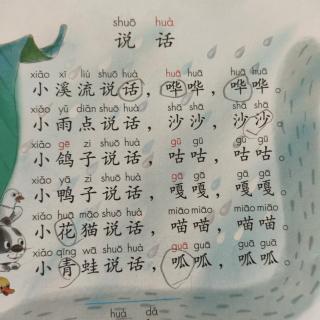 shuō huà
说 话
xiǎo xī liú shuō huà huā huā huā huā
小溪流说话，哗哗，哗哗。
xiǎo yǔ diǎn shuō huà shā shā shā shā
小雨点说话，沙沙，沙沙。
xiǎo gē zi shuō huà gū gū gū gū
小鸽子说话，咕咕，咕咕。
xiǎo yā zi shuō huà gā gā gā gā
小鸭子说话，嘎嘎，嘎嘎。
xiǎo huā māo shuō huà miāo miāo miāo miāo
小花猫说话，喵喵，喵喵。
xiǎo qīng wā shuō huà guā guā guā guā
小青蛙说话，呱呱，呱呱。
huà dá